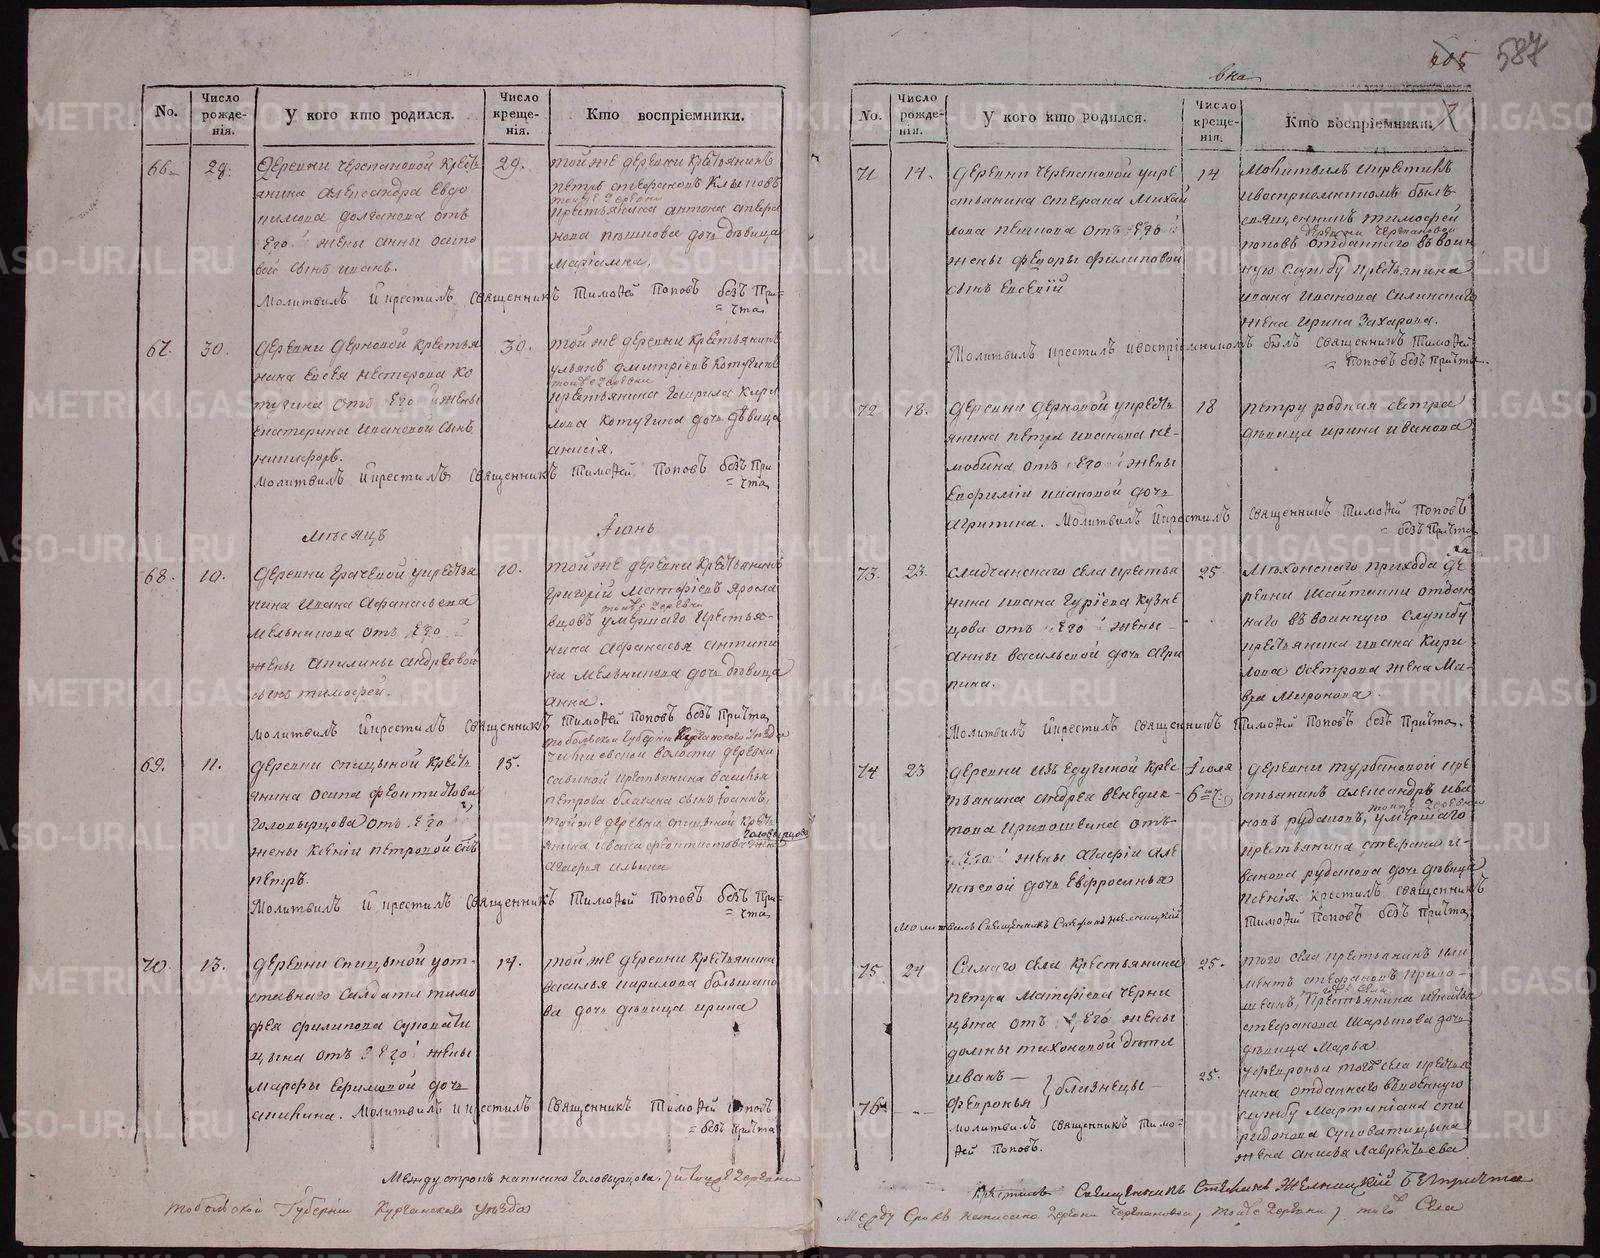 вка
605 587
No.
Число рожде-нія.
У кого кто родился.
Число креще-нія.
Кто воспріемники.
66
29.
деревни черепановой кресть
янина александра евдо
кимова долганова отъ
Его жены анны осипо
вой сынъ иванъ.
29.
той же деревни крестьянинъ
петръ стефановъ
той же деревни
крестьянина антона стефа
нова пешнова дочь девица
марiамна.
Молитвилъ и крестилъ священникъ Тимоѳей Поповъ безъ При=
=чта
67.
30.
деревни дерновой крестья
нина евсея нестерова ко
тугина отъ Его жены
екатерины ивановой сынъ
никифоръ.
30.
той же деревни крестьянинъ
ульянъ дмитріевъ котугинъ
той же деревни
крестьянина гаврила кири
лова котугина дочь девица
анисія.
Молитвилъ и крестилъ священникъ Тимоѳей Поповъ безъ При
=чта
мѣсяцъ Іюнь
68.
10.
деревни грачевой крестья
нина ивана афанасьева
мельникова отъ Его
жены акилины андреевой
сынъ тимофей.
10.
той же деревни крестьянинъ
григорій матфіевъ яросла
той же деревни
вцовъ умершаго крестья
нина афанасья антипи
на мельникова дочь девица
анна.
Молитвилъ и крестилъ священникъ Тимоѳей Поповъ безъ Причта
69.
11.
деревни спицыной кресть
янина осипа феоктистова
головырцова отъ Его
жены ксеніи петровой сынъ
петръ.
15.
тобольской губерніи Курганскаго уѣзда
волости деревни
савиной крестьянина василья
петрова сынъ
той же деревни спицыной кресть
головырцова
янина ивана феоктистова жена
агафья ильина
Молитвилъ и крестилъ священникъ Тимоѳей Поповъ безъ При=
=чта
70.
13.
деревни спицыной у от
ставнаго салдата тимо
фея филипова суновати
цына отъ Его жены
марфы ефимовой дочь
акилина. Молитвилъ и крестилъ священникъ Тимоѳей Поповъ
=безъ Причта
14.
той же деревни крестьянина
василья кирилова большако
ва дочь девица ирина
Между строкъ написано головырцова, и той же деревни
тобольской Губерніи Курганскаго уезда
No.
Число рожде-нія.
У кого кто родился.
Число креще-нія.
Кто воспріемники.
71
14.
деревни черепановой у кре
стьянина стефана михай
лова пешнова отъ Его
жены федоры филиповой
сынъ евсевій
14
Молитвилъ и крестилъ
и воспріемникомъ былъ
священникъ тимофей
деревни черепановой
поповъ отданнаго въ воин
ную службу крестьянина
ивана иванова
жена ирина Захарова.
Молитвилъ крестилъ и воспріемникомъ былъ священникъ Тимоѳей
=Поповъ безъ Причта
72
18.
деревни дерновой у кресть
янина петра иванова не-
мобина отъ Его жены
Евфиміи ивановой дочь
агрипина. Молитвилъ и крестилъ священникъ Тимоѳей Поповъ
=безъ Причта
18
петру родная сестра
девица ирина иванова
73.
23.
села крестья
нина ивана Гуріева кузне
цова отъ Его жены
анны васильевой дочь агри
пина.
25.
Мехонскаго прихода де
ревни шайтанки отдан
наго въ военную службу
крестьянина ивана кири
лова осетрова жена ма-
вра Миронова.
Молитвилъ и крестилъ священникъ Тимоѳей Поповъ безъ Причта.
74
23
деревни изъедугиной крес
тьянина андрея венедик-
това кривошеина отъ
Его жены агафіи але
ксеевой дочь Евфросинья
Іюля
6го
деревни турбановой кре
стьянинъ александръ ива
той же деревни
новъ рудаковъ, умершаго
крестьянина стефана и-
ванова рудакова дочь девица
ксенія. крестилъ священникъ
Тимоѳей Поповъ безъ Причта
Молитвилъ Священникъ Стефанъ Желницкій
75
24
Самаго села крестьянина
петра матфіева черни
цына отъ Его жены
домны тихоновой дети
иванъ—
25.
того села крестьянинъ кли
ментъ стефановъ криво-
того села
шеинъ, крестьянина игнатья
стефанова шарыпова дочь
девица Марья
76
февронья } близнецы—
25.
у февроньи того села крестья
нина отданнаго въ военную
службу мартиніана спи
ридонова суноватицына
жена анисья лаврентьева
Молитвилъ священникъ Тимо=
ѳей Поповъ.
крестилъ Священникъ Стефанъ Желницкій безъ причта
Между строкъ написано деревни черепановой, той же деревни, того Села